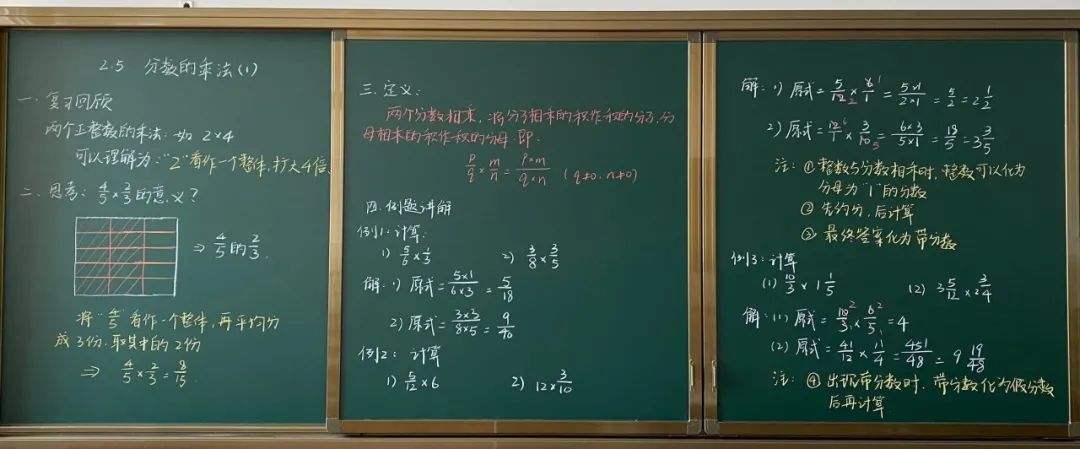 2.5 分数的乘法(1)
一. 复习回顾
两个正整数的乘法. 如 2×4
可以理解为: "2"看作一个整体, 扩大4倍.
二. 思考: 4/5 × 2/3 的意义?
⇒ 4/5 的 2/3.
将"4/5"看作一个整体, 再平均分
成3份, 取其中的2份
⇒ 4/5 × 2/3 = 8/15.
三. 定义:
两个分数相乘, 将分子相乘的积作积的分子, 分
母相乘的积作积的分母. 即:
p/q × m/n = p×m/q×n (q≠0. n≠0)
四. 例题讲解
例1: 计算:
1) 5/6 × 1/3 2) 3/8 × 3/5
解: 1) 原式 = 5×1/6×3 = 5/18
2) 原式 = 3×3/8×5 = 9/40
例2: 计算
1) 5/12 × 6 2) 12 × 3/10
解: 1) 原式 = 5/12 2 × 6 1/1 = 5×1/2×1 = 5/2 = 2 1/2
2) 原式 = 12 6/1 × 3/10 5 = 6×3/5×1 = 18/5 = 3 3/5
注: ① 整数与分数相乘时, 整数可以化为
分母为"1"的分数
② 先约分, 后计算
③ 最终答案化为带分数
例3: 计算
(1) 10/3 × 1 1/5 (2) 3 5/12 × 2 3/4
解: (1) 原式 = 10 2/3 1 × 6 2/5 1 = 4
(2) 原式 = 41/12 × 11/4 = 451/48 = 9 19/48
注: ④ 出现带分数时, 带分数化为假分数
后再计算